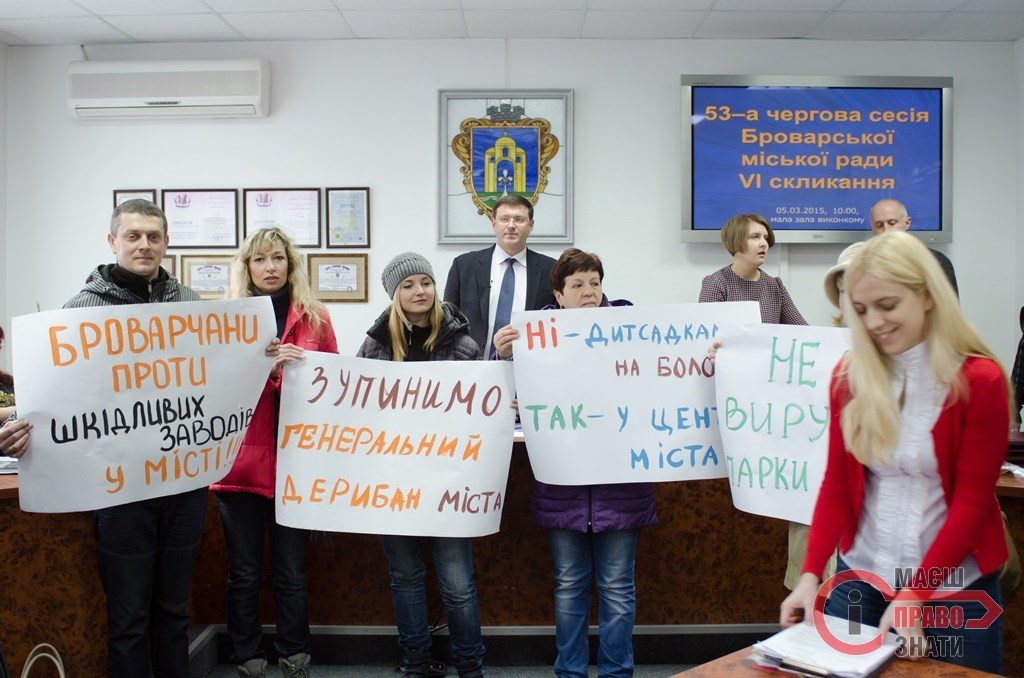 53–а чергова сесія
Броварської
міської ради
VI скликання
05.03.2015, 10:00,
мала зала виконкому
БРОВАРЧАНИ
ПРОТИ
ШКІДЛИВИХ
ЗАВОДІВ
У МІСТІ!!!
ЗУПИНИМО
ГЕНЕРАЛЬНИЙ
ДЕРИБАН МІСТА
НІ - ДИТСАДКАМ
НА БОЛО
ТАК - У ЦЕНТ
МІСТА
НЕ
ВИРУ
ПАРКИ
МАЄШ
ПРАВО
ЗНАТИ